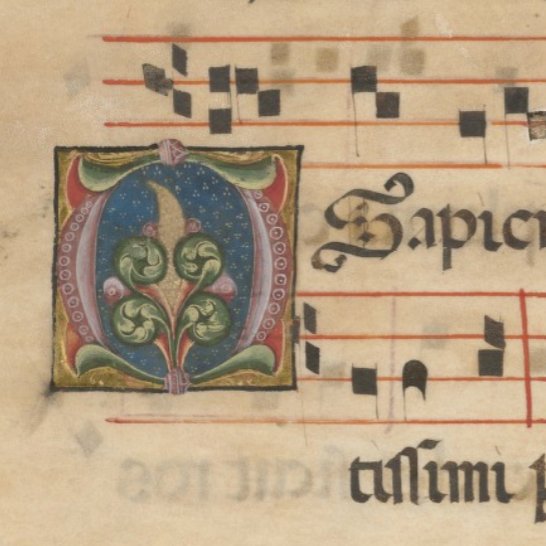 O Sapien
tissimi p